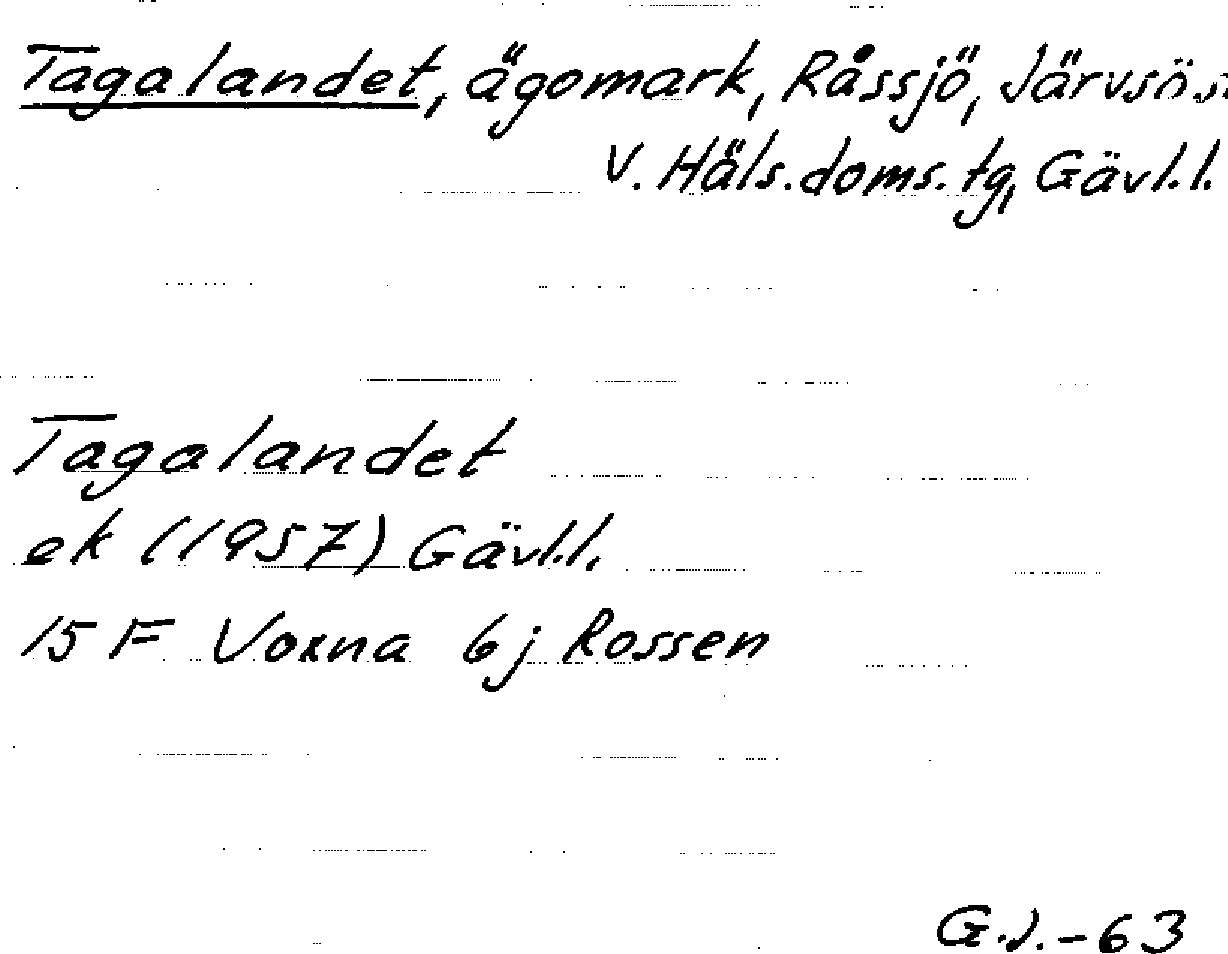 Tagalandet, ägomark, Råssjö, Järvsö s
V. Häls.doms.tg, Gävl.l.
Tagalandet
ek (1957) Gävl.l.
15 F Voxna 6j Rossen
G.J.-63